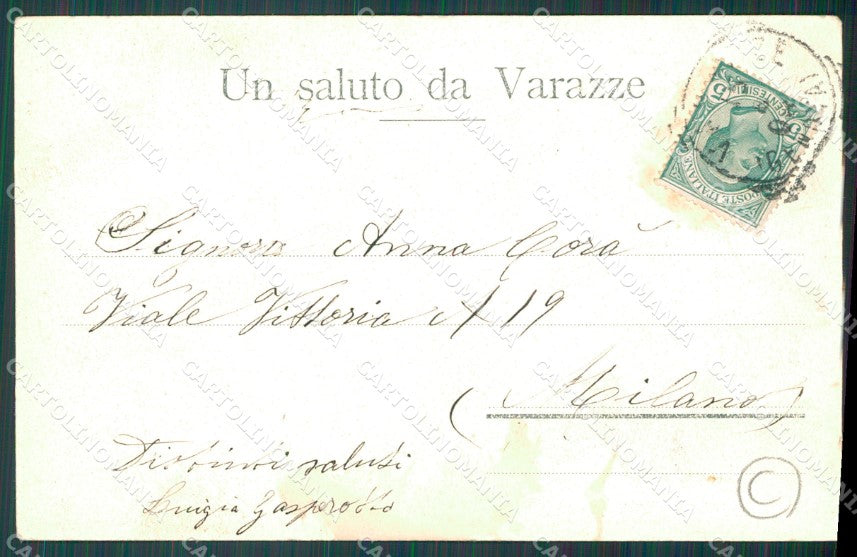 Un saluto da Varazze
5 CENTESIMI 5
POSTE ITALIANE
Signora Anna Corà
Viale Vittoria N 19
(Milano)
Distinti saluti
Luigia Gasparotto
C
CARTOLINOMANIA